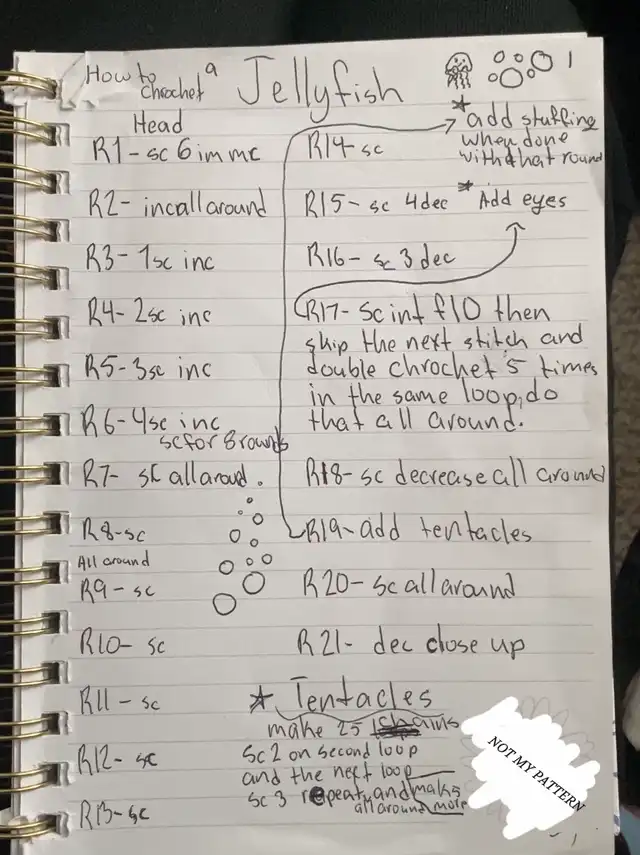 How to chrochet a Jellyfish
1
Head
R1 - sc 6 im mc
R2 - inc all around
R3 - 1sc inc
R4 - 2sc inc
R5 - 3sc inc
R6 - 4sc inc
sc for 8 rounds
R7 - sc all aroud.
R8 - sc
All around
R9 - sc
R10 - sc
R11 - sc
R12 - sc
R13 - sc
R14 - sc
* add stuffing
when done
with that round
R15 - sc 4 dec
* Add eyes
R16 - sc 3 dec
R17 - sc int flo then
skip the next stitch and
double chrochet 5 times
in the same loop, do
that all around.
R18 - sc decrease all around
R19 - add tentacles
R20 - sc all around
R21 - dec close up
☆ Tentacles
make 25 chains
sc 2 on second loop
and the next loop
sc 3 repeat, and make
all around more
NOT MY PATTERN